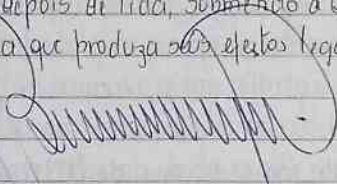 depois de lida, submendo à
a que produza seus efeitos lega